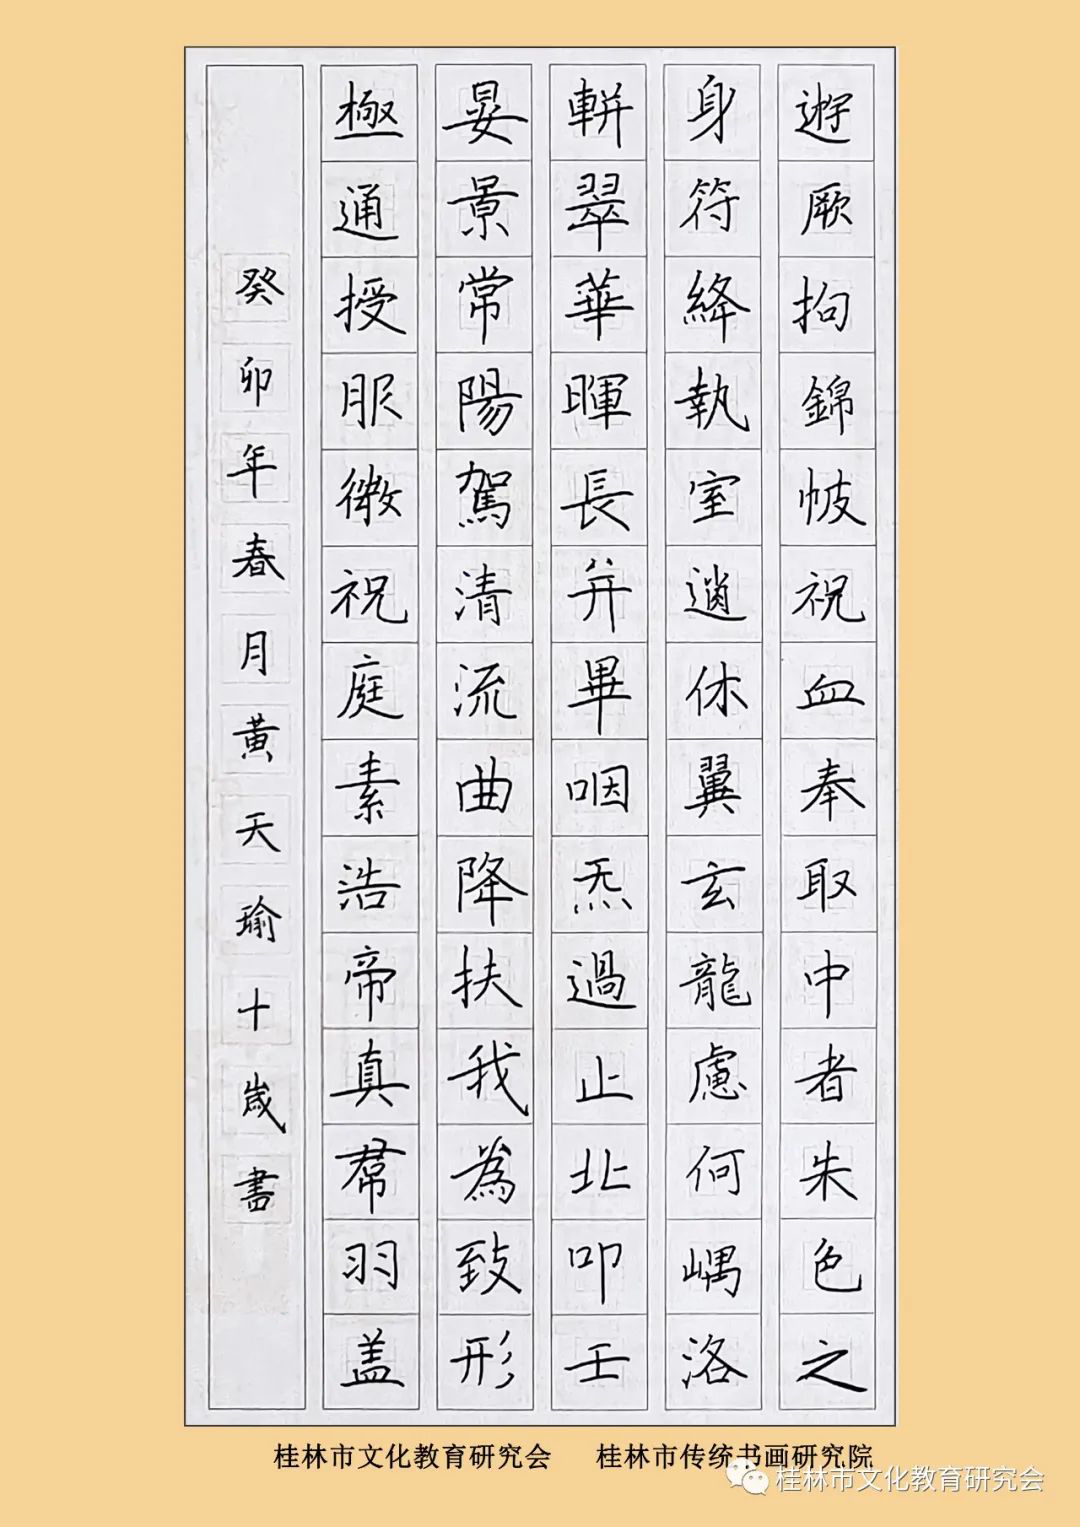 遊厥拘錦帔祝血奉取中者朱色之
身符絳執室逍休翼玄龍慮何嵎洛
軿翠華暉長并畢咽炁過止北叩壬
晏景常陽駕清流曲降扶我為致形
極通授服微祝庭素浩帝真羣羽盖
癸卯年春月黄天瑜十歲書
桂林市文化教育研究会 桂林市传统书画研究院
桂林市文化教育研究会